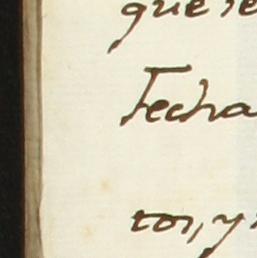 que se
Fecha
tor, y